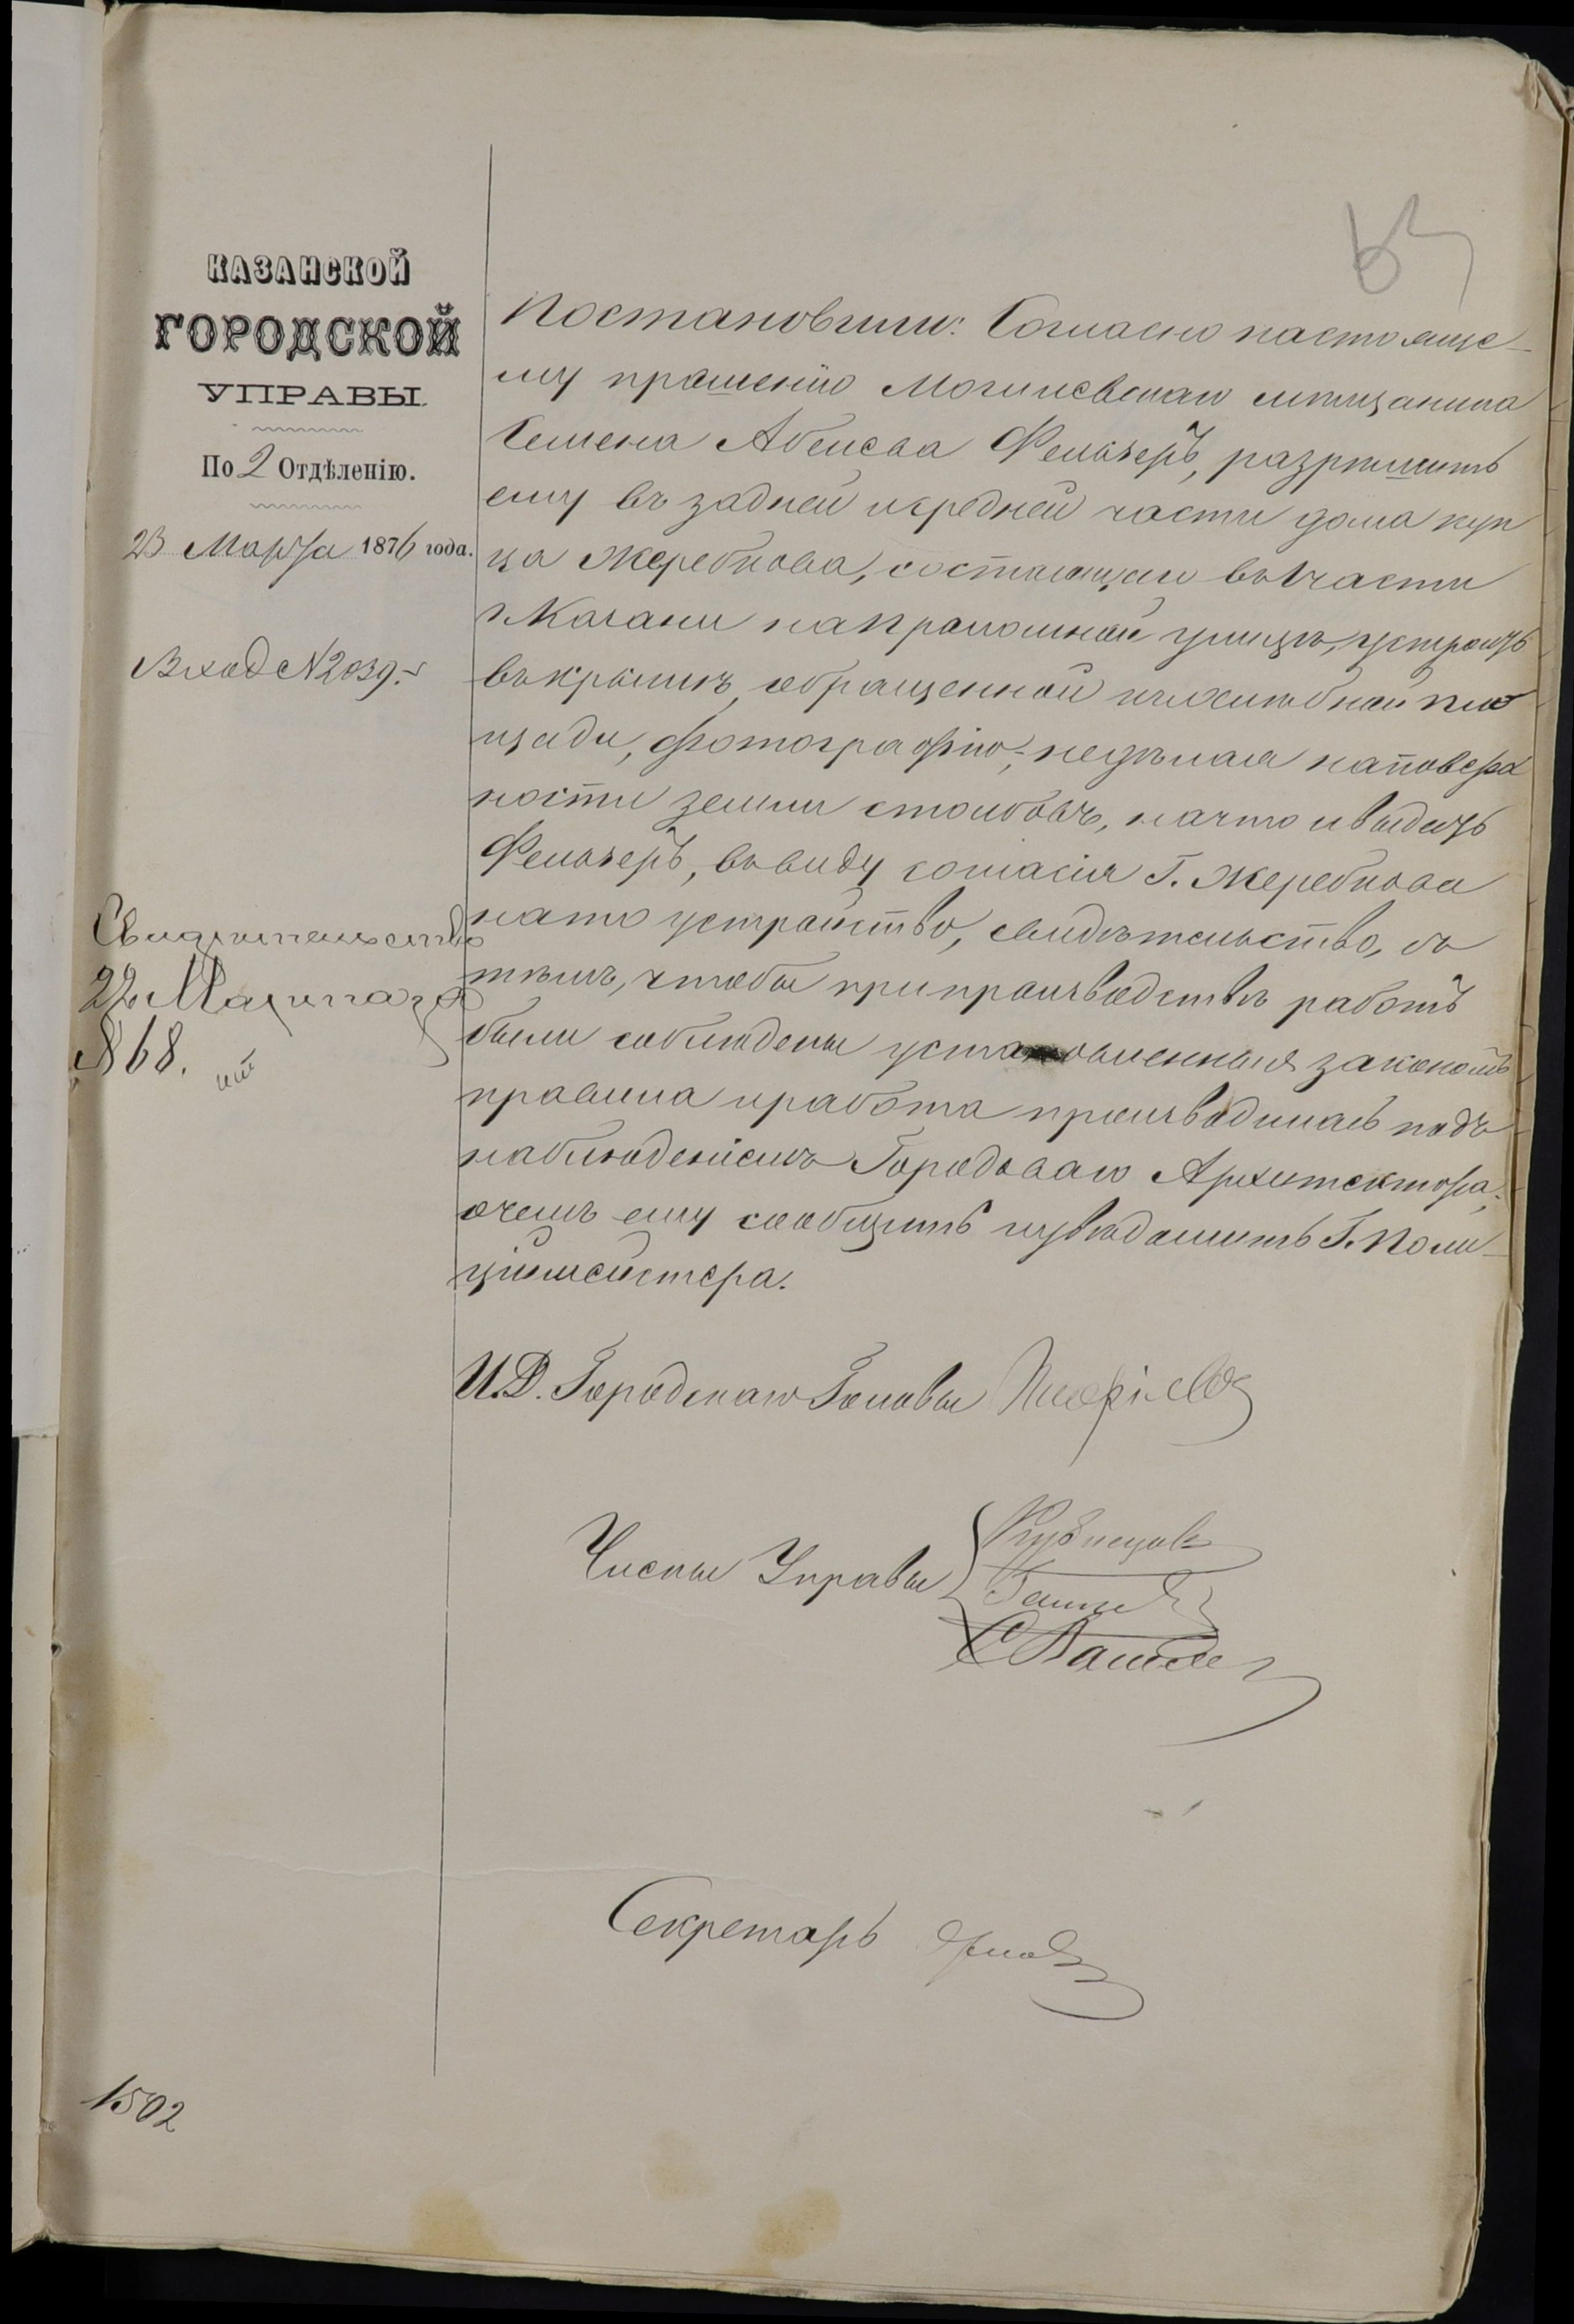 КАЗАНСКОЙ
ГОРОДСКОЙ
УПРАВЫ.
По 2 Отдѣленію.
23 Марта 1876 года.
Вход №2039.
Свидѣтельство
22 Марта за
№ 68.
1502
Постановили: Согласно настояще-
му прошенію Могилевскаго мѣщанина
Семена Абелева Фельзеръ, разрѣшить
ему въ задней и средней части дома куп
ца Жеребцова, состоящаго въ 1 части
г. Казани на Проломной улицѣ, устроить
въ крышѣ, обращенной къ хлѣбной пло
щади, фотографію, не дѣлая на поверх
ности земли столбовъ, на что и выдать
Фельзеръ, въ виду согласія Г. Жеребцова
на то устройство, свидѣтельство, съ
тѣмъ, чтобы при производствѣ работъ
были соблюдены установленныя закономъ
правила и работа производилась подъ
наблюденіемъ Городоваго Архитектора,
о чемъ ему сообщить и увѣдомить Г. Поли-
ціймейстера.
И.Д. Городскаго Головы
Члены Управы
Кузнецовъ
Секретарь